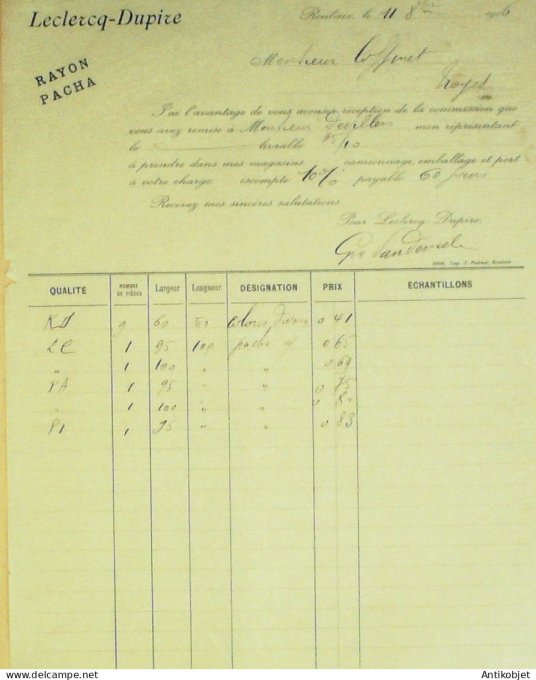 Leclercq-Dupire
Roubaix, le 11 8bre 1906
RAYON
PACHA
Monsieur Coffinet
Troyes
J'ai l'avantage de vous accuser réception de la commission que
vous avez remise à Monsieur Deviller mon représentant
le livrable 25/10
à prendre dans mes magasins camionnage, emballage et port
à votre charge. escompte 10% payable 60 jours
Recevez mes sincères salutations
Pour Leclercq-Dupire,
QUALITÉ NOMBRE DE PIÈCES Largeur Longueur DÉSIGNATION PRIX ÉCHANTILLONS
9 60 0 41
LC 1 95 100 pacha 0 65
" 1 100 " " 0 69
PA 1 95 " " 0 75
" 1 100 " " 0 80
P1 1 95 " " 0 83
© www.delcampe.net
Antikobjet